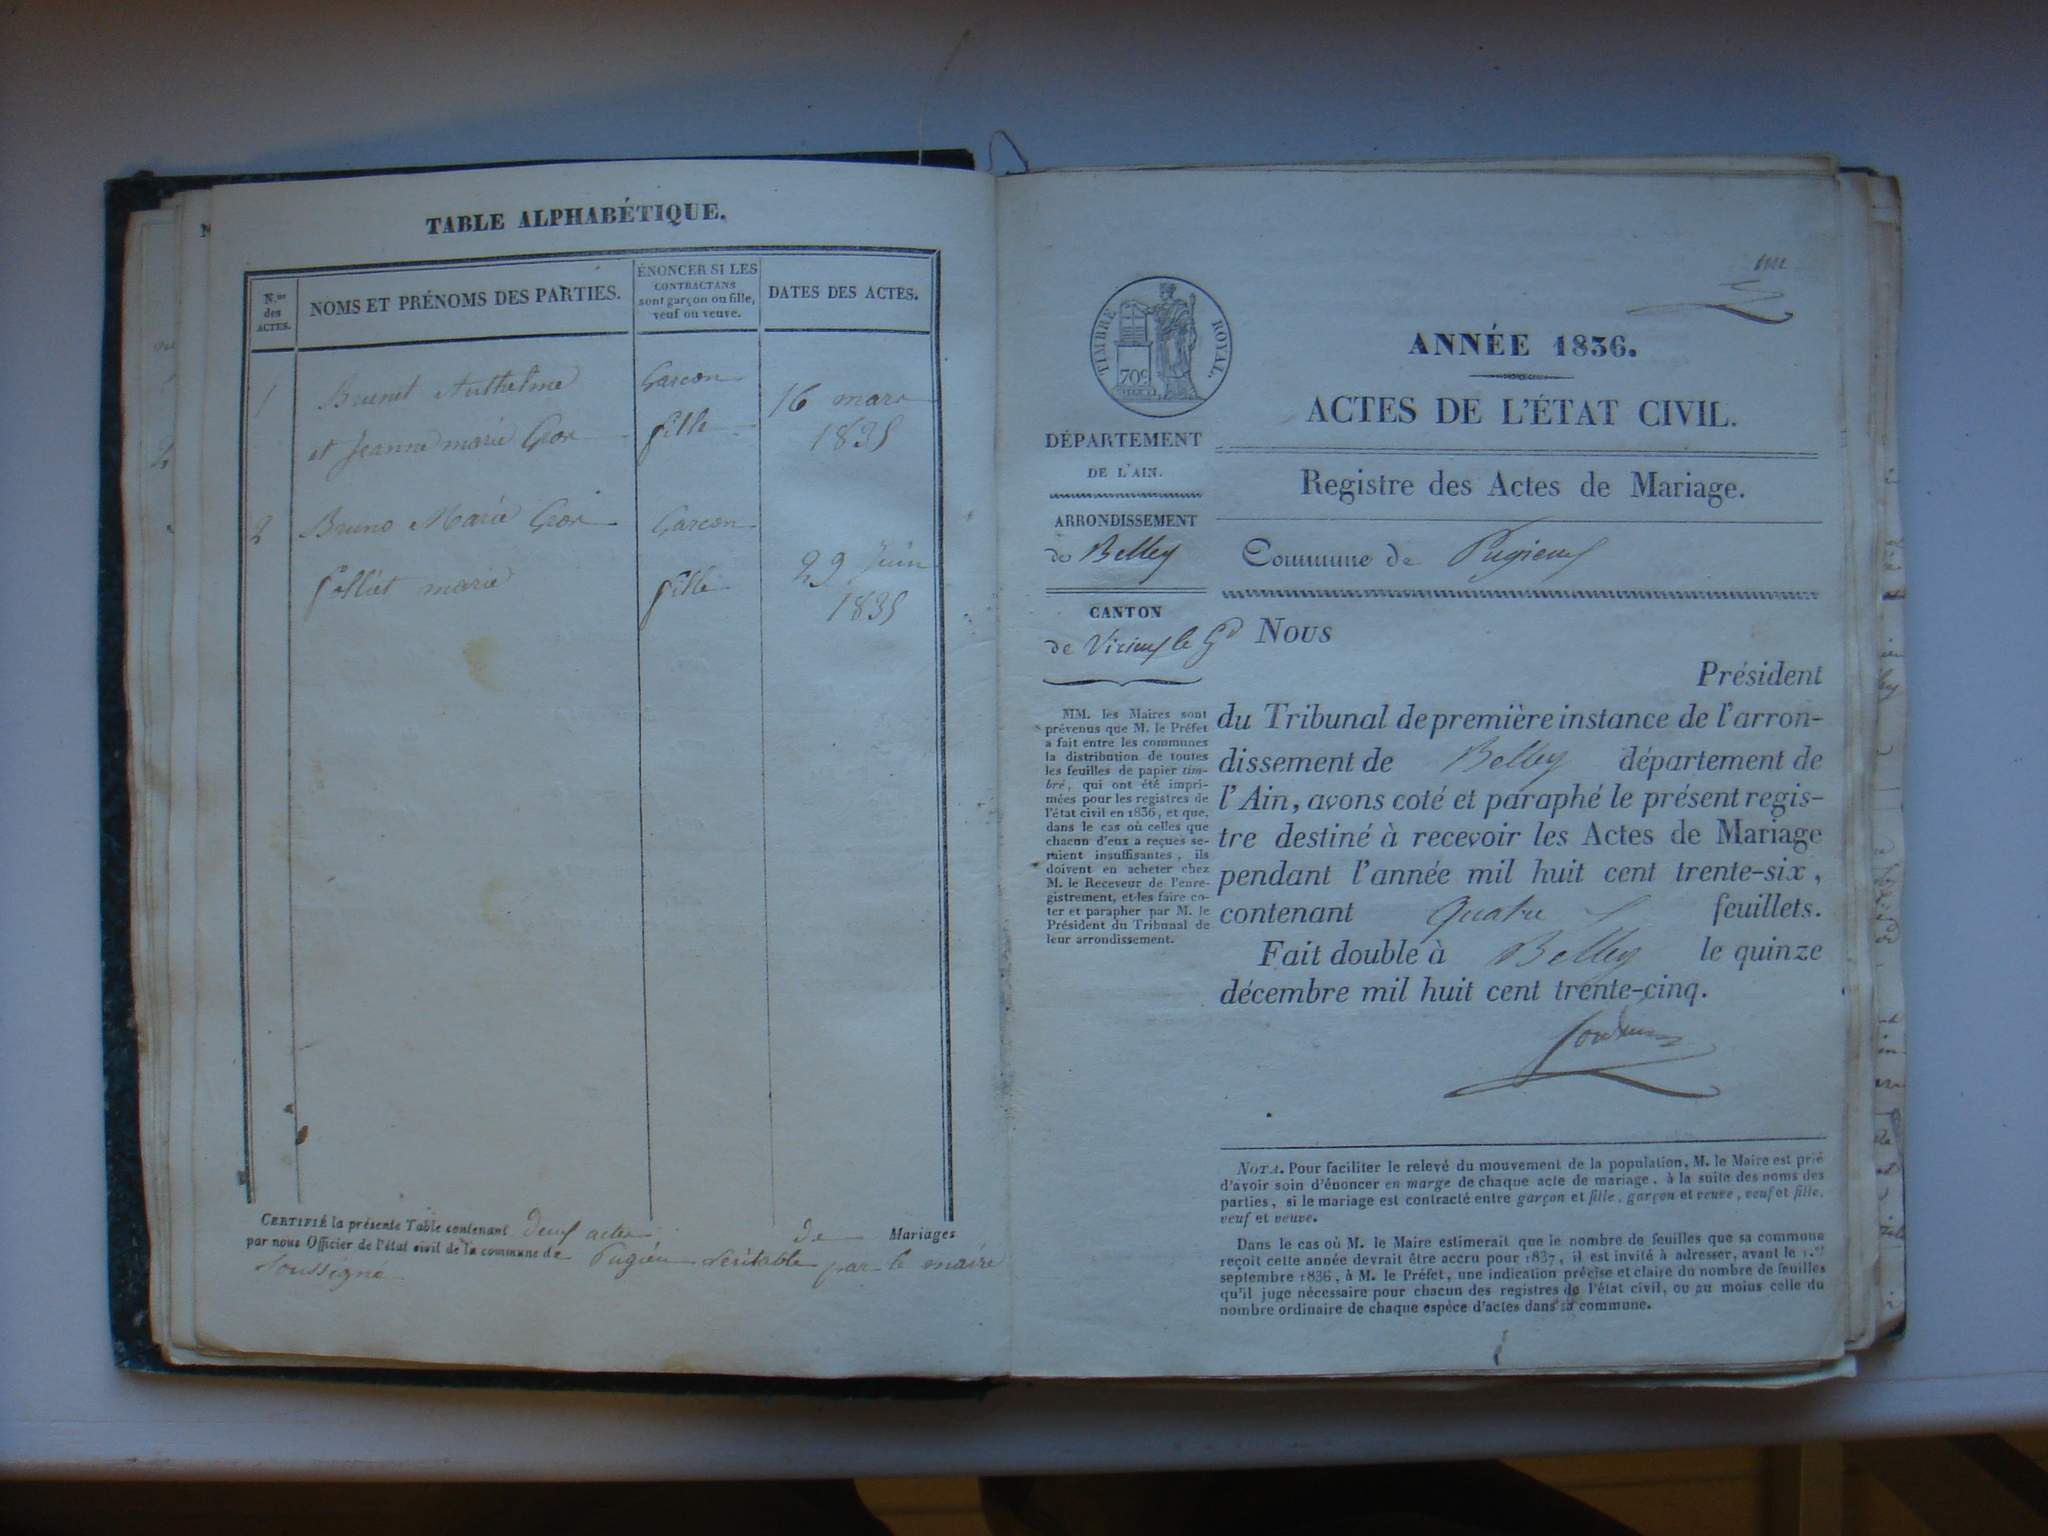 TABLE ALPHABÉTIQUE.
N.os des ACTES.
NOMS ET PRÉNOMS DES PARTIES.
ÉNONCER SI LES
CONTRACTANS
sont garçon ou fille,
veuf ou veuve.
DATES DES ACTES.
1 Brunet Anthelme Garcon 16 mars
et Jeanne marie Gros fille 1835
2 Bruno Marie Garcon
29 Juin
marie fille 1835
CERTIFIÉ la présente Table contenant deux actes de Mariages
par nous Officier de l'état civil de la commune de Pugieu véritable par le maire
soussigné
TIMBRE ROYAL.
70c
DÉPARTEMENT
DE L'AIN.
ARRONDISSEMENT
de Belley
CANTON
de Virieux le Gd
MM. les Maires sont
prévenus que M. le Préfet
a fait entre les communes
la distribution de toutes
les feuilles de papier tim-
bré, qui ont été impri-
mées pour les registres de
l'état civil en 1836, et que,
dans le cas où celles que
chacun d'eux a reçues se-
raient insuffisantes, ils
doivent en acheter chez
M. le Receveur de l'enre-
gistrement, et les faire co-
ter et parapher par M. le
Président du Tribunal de
leur arrondissement.
ANNÉE 1836.
ACTES DE L'ÉTAT CIVIL.
Registre des Actes de Mariage.
Commune de Pugieux
NOUS
Président
du Tribunal de première instance de l'arron-
dissement de Belley département de
l'Ain, avons coté et paraphé le présent regis-
tre destiné à recevoir les Actes de Mariage
pendant l'année mil huit cent trente-six,
contenant quatre feuillets.
Fait double à Belley le quinze
décembre mil huit cent trente-cinq.
NOTA. Pour faciliter le relevé du mouvement de la population, M. le Maire est prié
d'avoir soin d'énoncer en marge de chaque acte de mariage, à la suite des noms des
parties, si le mariage est contracté entre garçon et fille, garçon et veuve, veuf et fille,
veuf et veuve.
Dans le cas où M. le Maire estimerait que le nombre de feuilles que sa commune
reçoit cette année devrait être accru pour 1837, il est invité à adresser, avant le 1.er
septembre 1836, à M. le Préfet, une indication précise et claire du nombre de feuilles
qu'il juge nécessaire pour chacun des registres de l'état civil, ou au moins celle du
nombre ordinaire de chaque espèce d'actes dans sa commune.